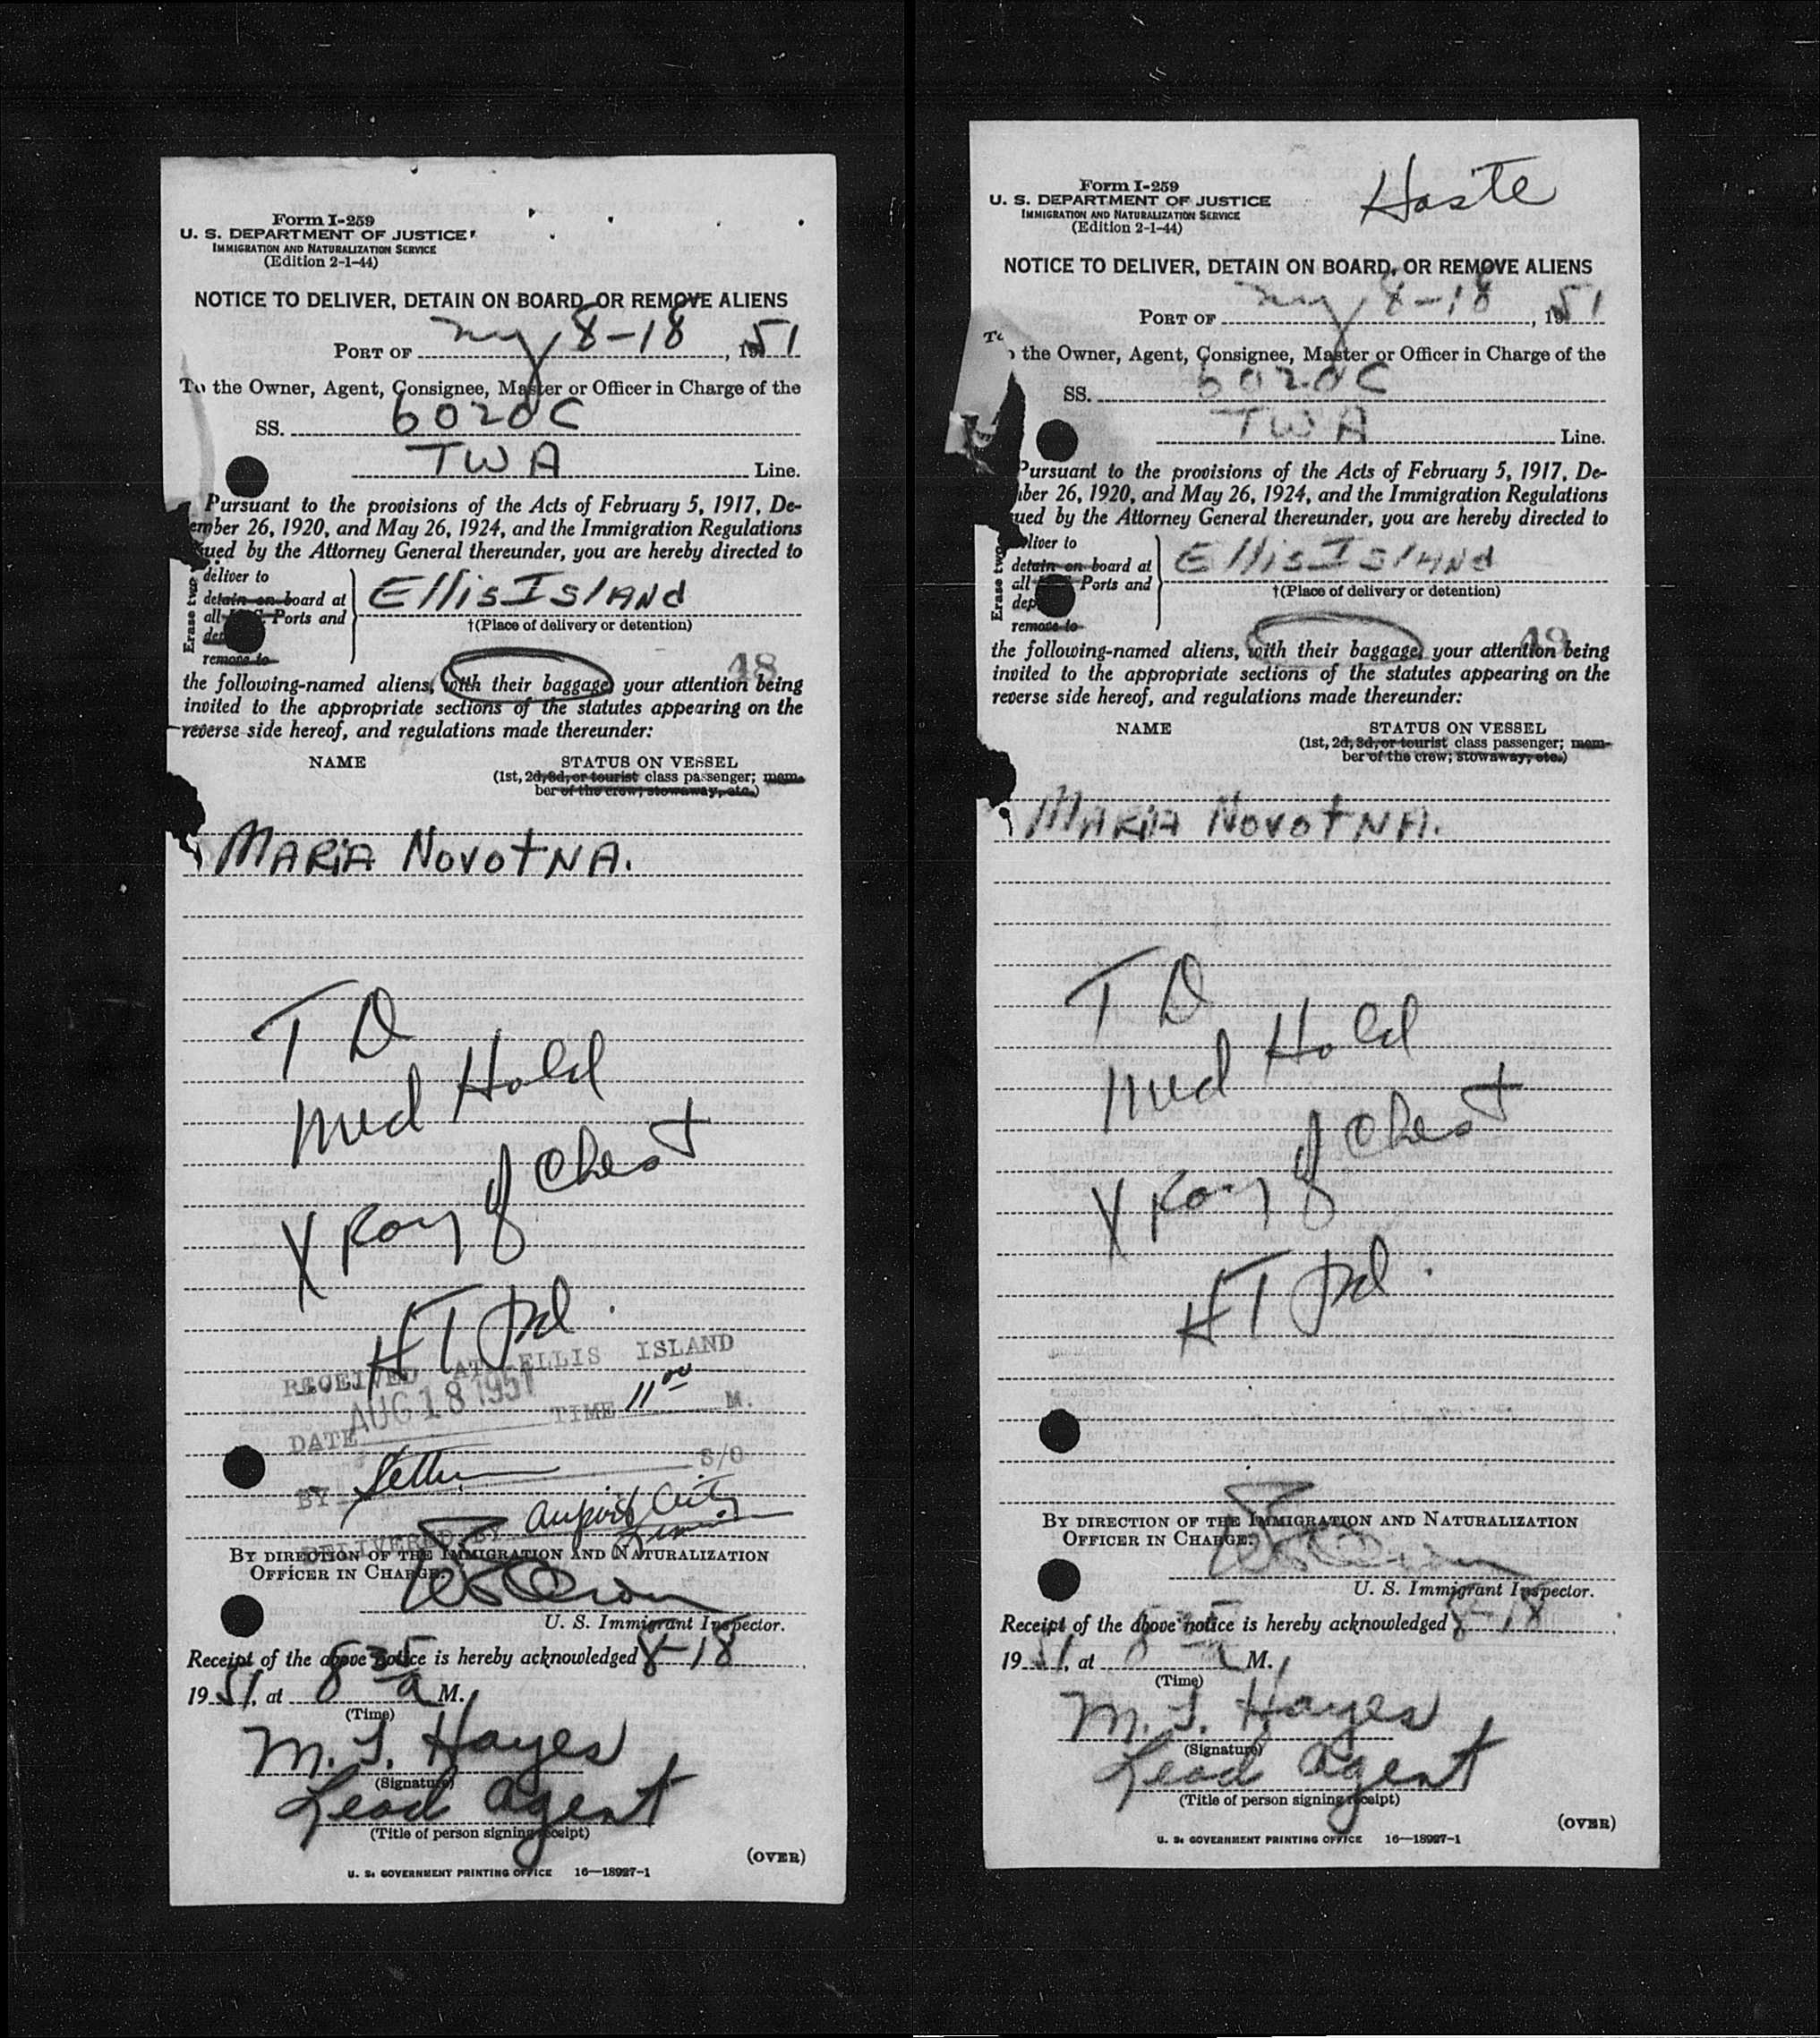 Form I-259
U. S. DEPARTMENT OF JUSTICE
IMMIGRATION AND NATURALIZATION SERVICE
(Edition 2-1-44)
NOTICE TO DELIVER, DETAIN ON BOARD, OR REMOVE ALIENS
PORT OF ny 8-18, 1951
To the Owner, Agent, Consignee, Master or Officer in Charge of the
SS. 6020C
TWA Line.
Pursuant to the provisions of the Acts of February 5, 1917, De-
ember 26, 1920, and May 26, 1924, and the Immigration Regulations
ued by the Attorney General thereunder, you are hereby directed to
Erase two
deliver to
detain on board at
all Ports and
remove to
Ellis Island
†(Place of delivery or detention)
48
the following-named aliens, with their baggage, your attention being
invited to the appropriate sections of the statutes appearing on the
reverse side hereof, and regulations made thereunder:
NAME STATUS ON VESSEL
(1st, 2d, 3d, or tourist class passenger; mem-
ber of the crew; stowaway, etc.)
MARIA NOVOTNA.
T D
Med Hold
X Ray of Chest
HT Md.
RECEIVED AT ELLIS ISLAND
DATE AUG 18 1951 TIME 11 00 M.
BY S/O
DELIVERED BY Airport City
BY DIRECTION OF THE IMMIGRATION AND NATURALIZATION
OFFICER IN CHARGE:
U. S. Immigrant Inspector.
Receipt of the above notice is hereby acknowledged 8-18
1951, at 8 35 a M.
(Time)
M. J. Hayes
(Signature)
Lead Agent
(Title of person signing receipt)
(OVER)
U. S. GOVERNMENT PRINTING OFFICE 16—18927-1
Haste
Form I-259
U. S. DEPARTMENT OF JUSTICE
IMMIGRATION AND NATURALIZATION SERVICE
(Edition 2-1-44)
NOTICE TO DELIVER, DETAIN ON BOARD, OR REMOVE ALIENS
PORT OF ny 8-18, 1951
To the Owner, Agent, Consignee, Master or Officer in Charge of the
SS. 6020C
TWA Line.
Pursuant to the provisions of the Acts of February 5, 1917, De-
ber 26, 1920, and May 26, 1924, and the Immigration Regulations
ued by the Attorney General thereunder, you are hereby directed to
Erase two
liver to
detain on board at
all Ports and
dep
remove to
Ellis Island
†(Place of delivery or detention)
49
the following-named aliens, with their baggage, your attention being
invited to the appropriate sections of the statutes appearing on the
reverse side hereof, and regulations made thereunder:
NAME STATUS ON VESSEL
(1st, 2d, 3d, or tourist class passenger; mem-
ber of the crew; stowaway, etc.)
MARIA NOVOTNA.
T D
Med Hold
X Ray of Chest
HT Md.
BY DIRECTION OF THE IMMIGRATION AND NATURALIZATION
OFFICER IN CHARGE:
U. S. Immigrant Inspector.
Receipt of the above notice is hereby acknowledged 8-18
1951, at 8 35 a M.
(Time)
M. J. Hayes
(Signature)
Lead Agent
(Title of person signing receipt)
(OVER)
U. S. GOVERNMENT PRINTING OFFICE 16—18927-1